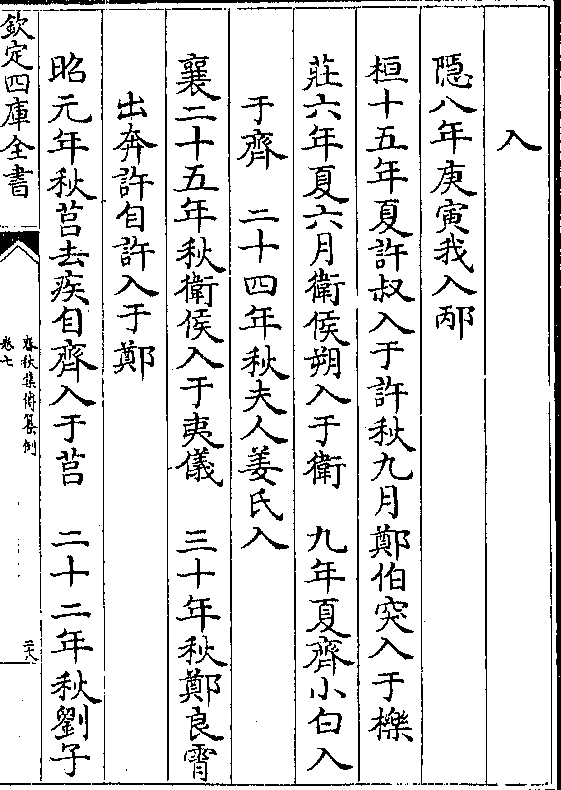 入
隱八年庚寅我入邴
桓十五年夏許叔入于許秋九月鄭伯突入于櫟
莊六年夏六月衛侯朔入于衛　九年夏齊小白入
于齊　二十四年秋夫人姜氏入
襄二十五年秋衛侯入于夷儀　三十年秋鄭良霄
出奔許自許入于鄭
昭元年秋莒去疾自齊入于莒　二十二年秋劉子
欽定四庫全書
春秋集傳纂例
卷七
二十八